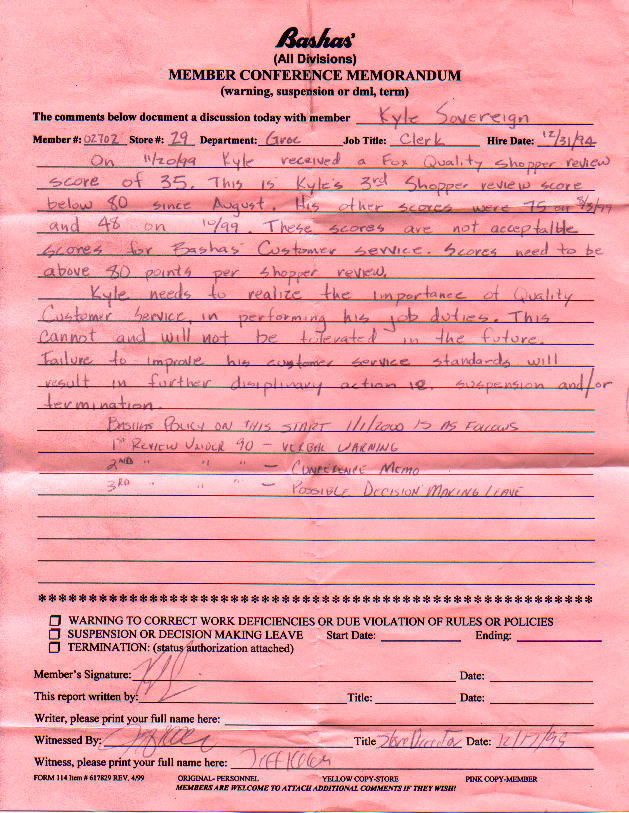 Bashas'
(All Divisions)
MEMBER CONFERENCE MEMORANDUM
(warning, suspension or dml, term)
The comments below document a discussion today with member Kyle Sovereign
Member #: 02702 Store #: 29 Department: Groc Job Title: Clerk Hire Date: 12/31/94
On 11/20/99 Kyle received a Fox Quality shopper review
score of 35. This is Kyle's 3rd Shopper review score
below 80 since August. His other scores were 75 on 8/3/99
and 48 on 10/99. These scores are not acceptalble
scores for Bashas' Customer service. Scores need to be
above 80 points per shopper review.
Kyle needs to realize the importance of Quality
Customer Service, in performing his job duties. This
cannot and will not be tolerated in the future.
Failure to improve his customer service standards will
result in further disiplinary action ie. suspension and/or
termination.
BASHAS POLICY ON THIS START 1/1/2000 IS AS FOLLOWS
1ST REVIEW UNDER 90 - VERBAL WARNING
2ND " " " - CONFERENCE MEMO
3RD " " " - POSSIBLE DECISION MAKING LEAVE
************************************************************
WARNING TO CORRECT WORK DEFICIENCIES OR DUE VIOLATION OF RULES OR POLICIES
SUSPENSION OR DECISION MAKING LEAVE Start Date: Ending:
TERMINATION: (status authorization attached)
Member's Signature: Date:
This report written by: Title: Date:
Writer, please print your full name here:
Witnessed By: Title Store Director Date: 12/17/99
Witness, please print your full name here: Jeff
FORM 114 Item # 617829 REV. 4/99 ORIGINAL- PERSONNEL YELLOW COPY-STORE PINK COPY-MEMBER
MEMBERS ARE WELCOME TO ATTACH ADDITIONAL COMMENTS IF THEY WISH!